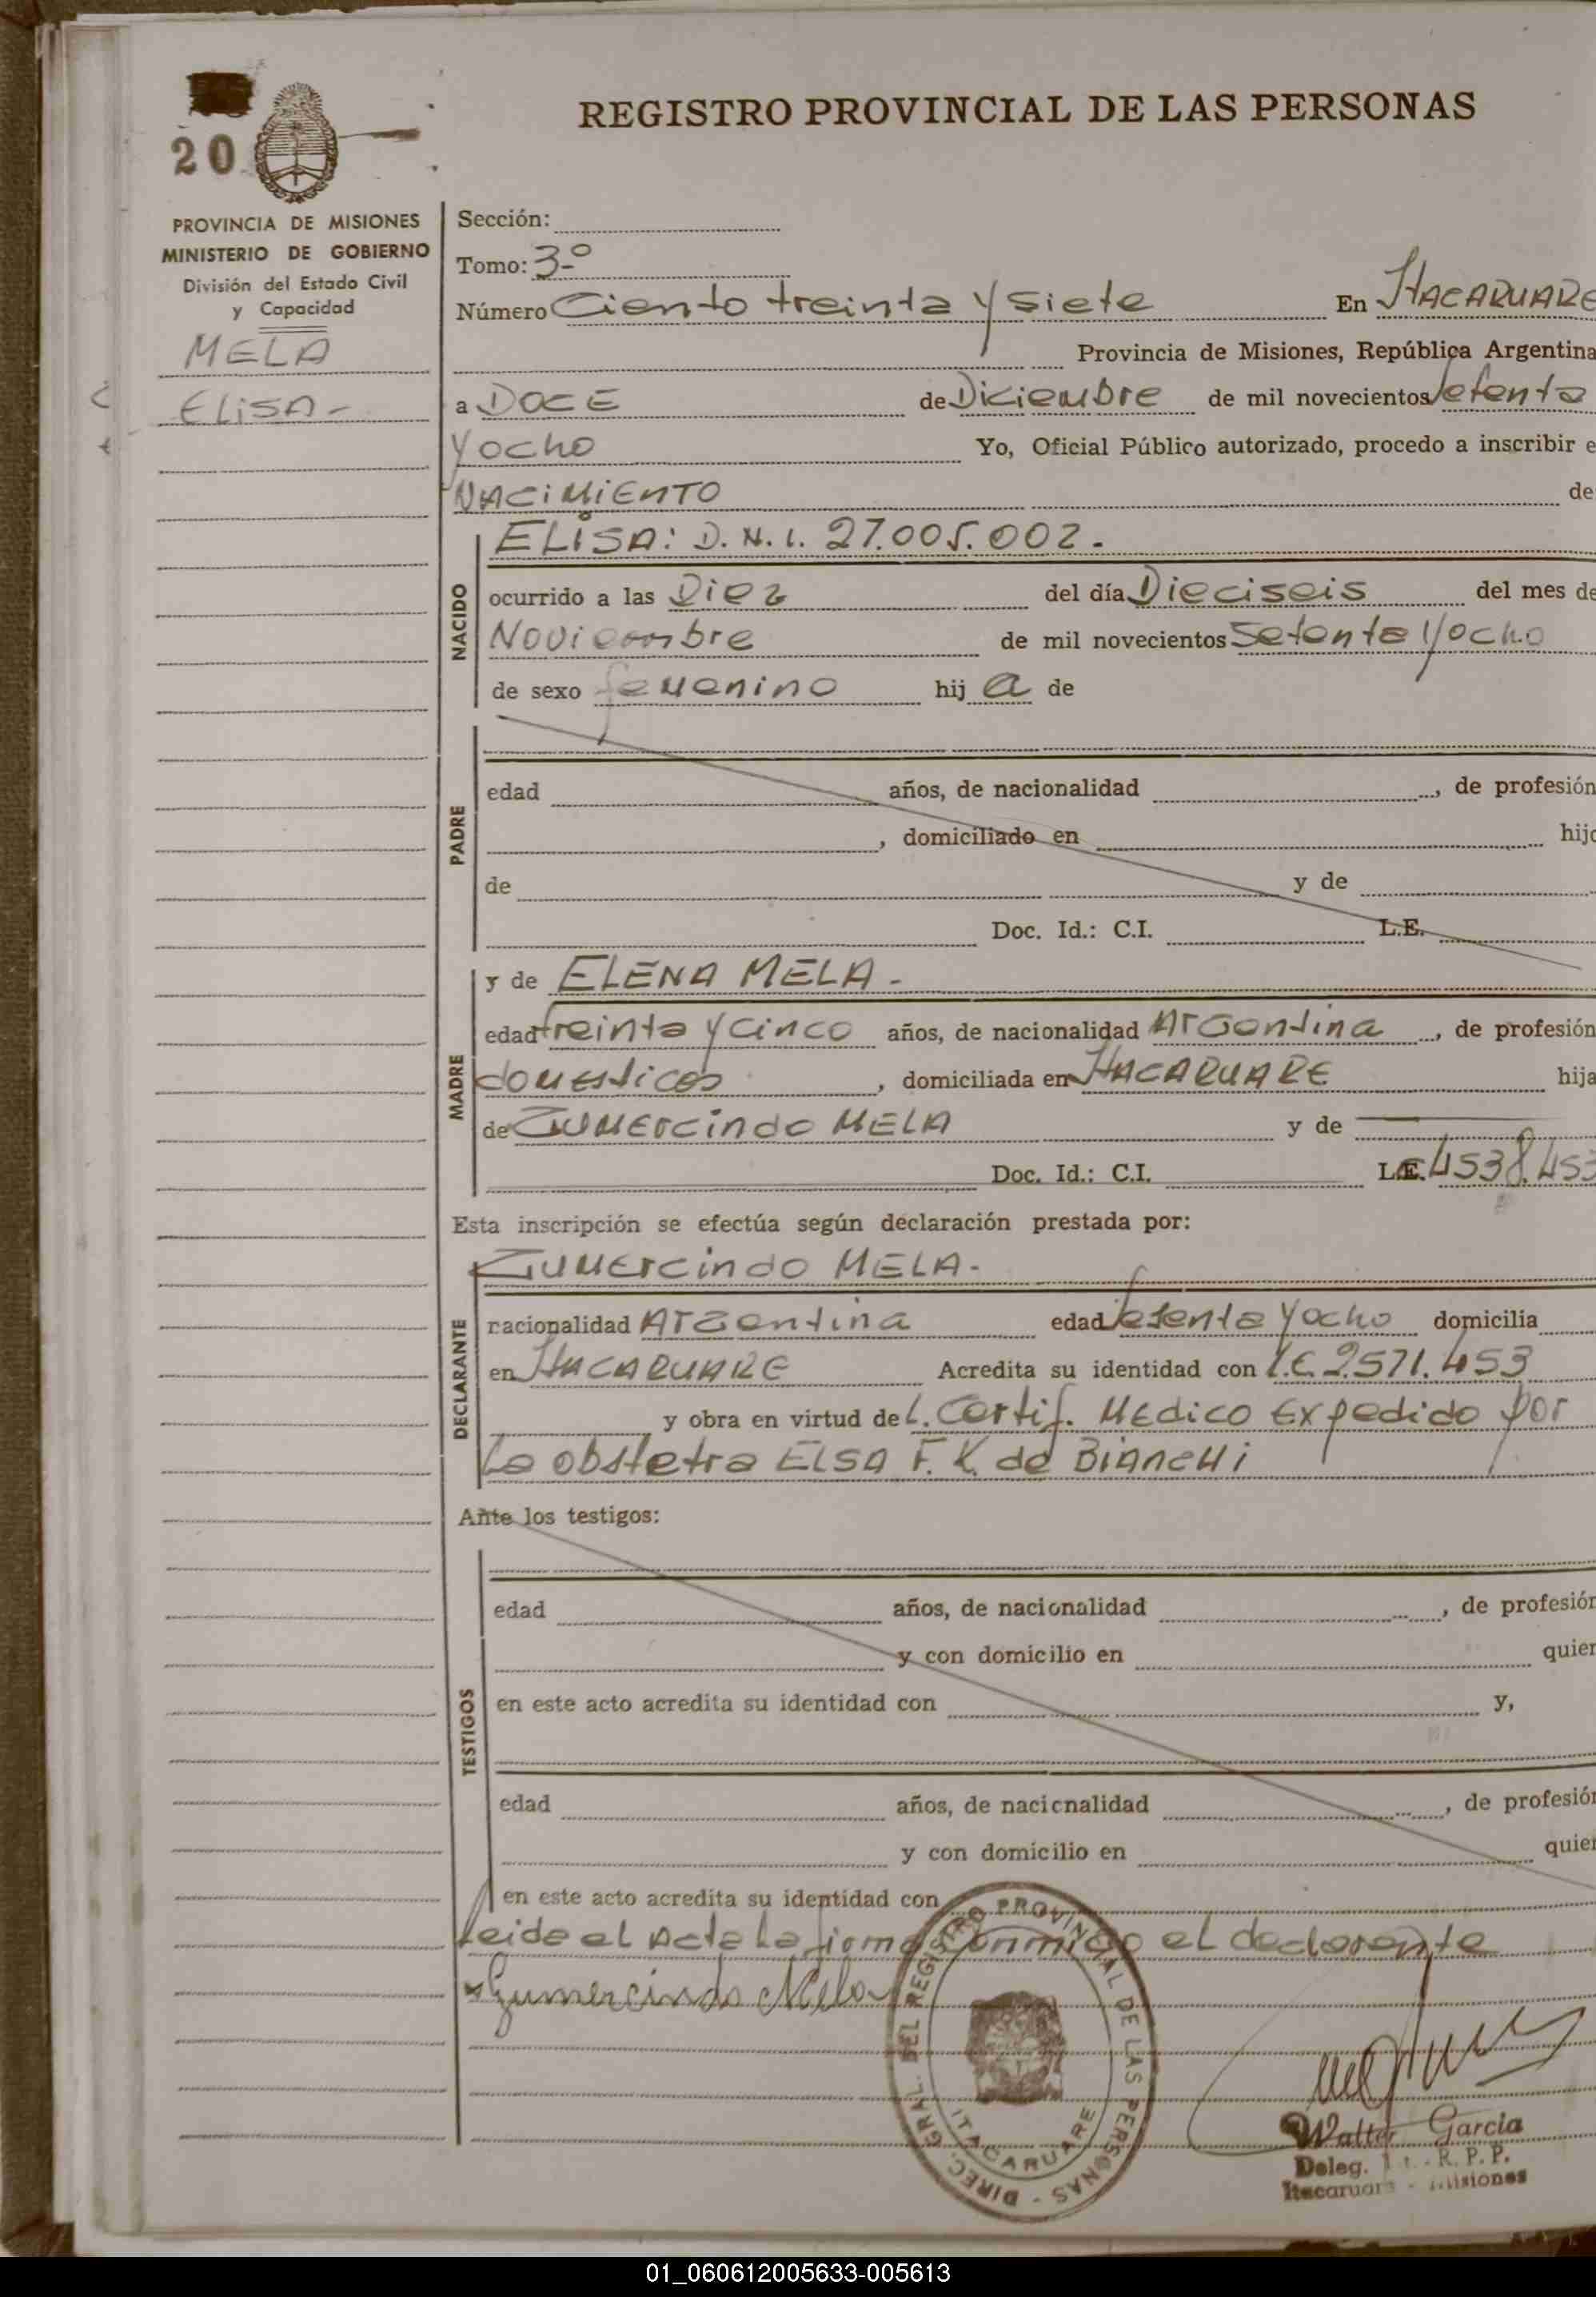 REGISTRO PROVINCIAL DE LAS PERSONAS
20
PROVINCIA DE MISIONES
MINISTERIO DE GOBIERNO
División del Estado Civil
y Capacidad
MELA
ELISA-
Sección:
Tomo: 3º
Número Ciento treinta y siete En ITACARUARE
Provincia de Misiones, República Argentina
a DOCE de Diciembre de mil novecientos setenta
y ocho Yo, Oficial Público autorizado, procedo a inscribir e
NACIMIENTO de
NACIDO
ELISA: D.N.I. 27.005.002.
ocurrido a las Diez del día Dieciseis del mes de
Noviembre de mil novecientos Setenta y ocho
de sexo femenino hij a de
PADRE
edad años, de nacionalidad , de profesión
, domiciliado en hijo
de y de
Doc. Id.: C.I. L.E.
MADRE
y de ELENA MELA-
edad treinta y cinco años, de nacionalidad Argentina , de profesión
domesticos , domiciliada en ITACARUARE hija
de Gumercindo MELA y de
Doc. Id.: C.I. L.C. 4538.453
Esta inscripción se efectúa según declaración prestada por:
Gumercindo MELA-
DECLARANTE
nacionalidad Argentina edad setenta y ocho domicilia
en ITACARUARE Acredita su identidad con L.E. 2.571.453
y obra en virtud de L. Certif. Medico Expedido por
La obstetra ELSA F. K. de Bianchi
Ante los testigos:
TESTIGOS
edad años, de nacionalidad , de profesión
y con domicilio en quien
en este acto acredita su identidad con y,
edad años, de nacionalidad , de profesión
y con domicilio en quien
en este acto acredita su identidad con
Leida el Acta La firma Conmigo el declarante
Gumercindo Mela
DIREC. GRAL. DEL REGISTRO PROVINCIAL DE LAS PERSONAS -
ITACARUARE
Walter Garcia
Deleg. R. P. P.
Itacaruare - Misiones
01_060612005633-005613